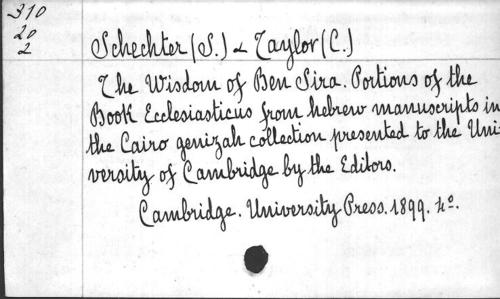 310
20
2
Schechter (S.) & Taylor (C.)
The Wisdom of Ben Sira. Portions of the
Book Ecclesiasticus from hebrew manuscripts in
the Cairo genizah collection presented to the Uni-
versity of Cambridge by the Editors.
Cambridge. University Press. 1899. 4º.